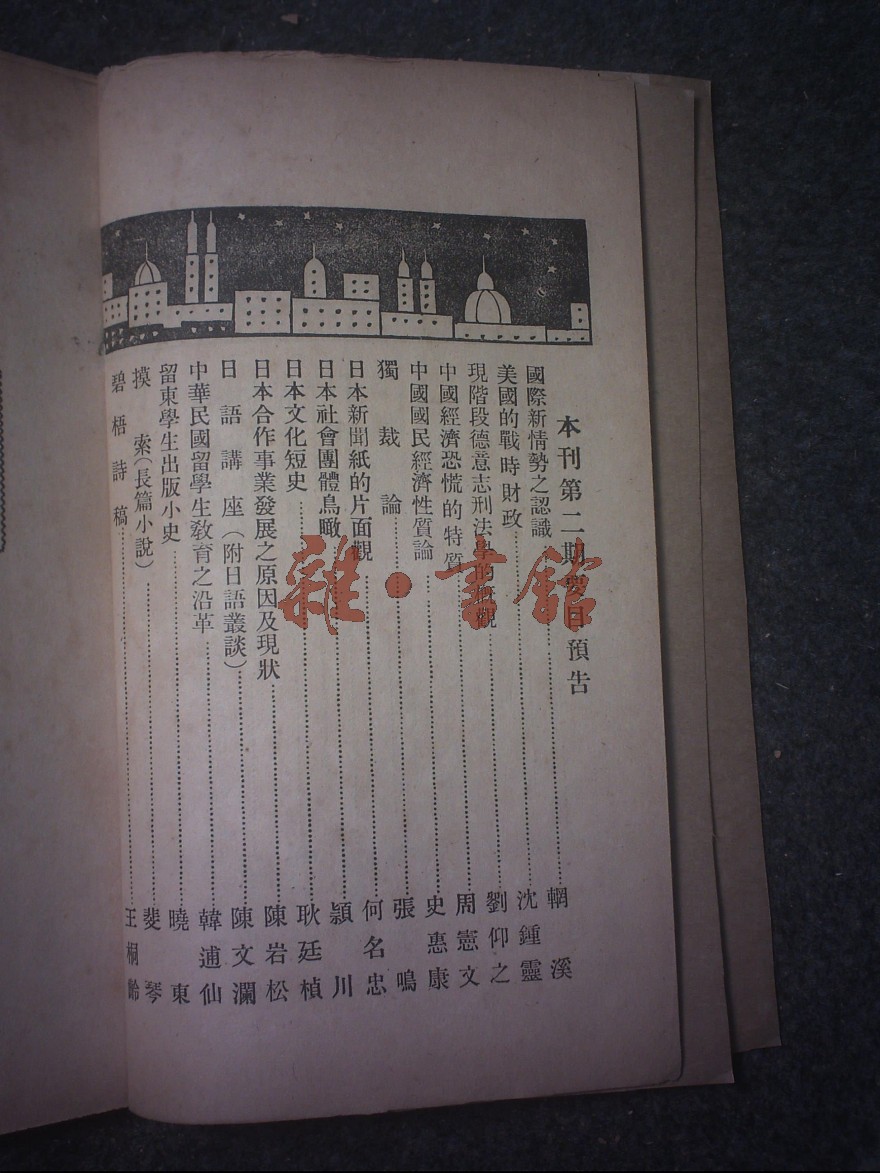 本刊第二期要目預告
國際新情勢之認識 輞溪
美國的戰時財政 沈鍾靈
現階段德意志刑法學的概觀 劉仰之
中國經濟恐慌的特質 周憲文
中國國民經濟性質論 史惠康
獨裁論 張鳴
日本新聞紙的片面觀 何名忠
日本社會團體鳥瞰 潁川
日本文化短史 耿廷楨
日本合作事業發展之原因及現狀 陳岩松
日語講座(附日語叢談) 陳文瀾
中華民國留學生敎育之沿革 韓逋仙
留東學生出版小史 曉東
摸索(長篇小說) 斐琴
碧梧詩稿 王桐齡
雜·書館